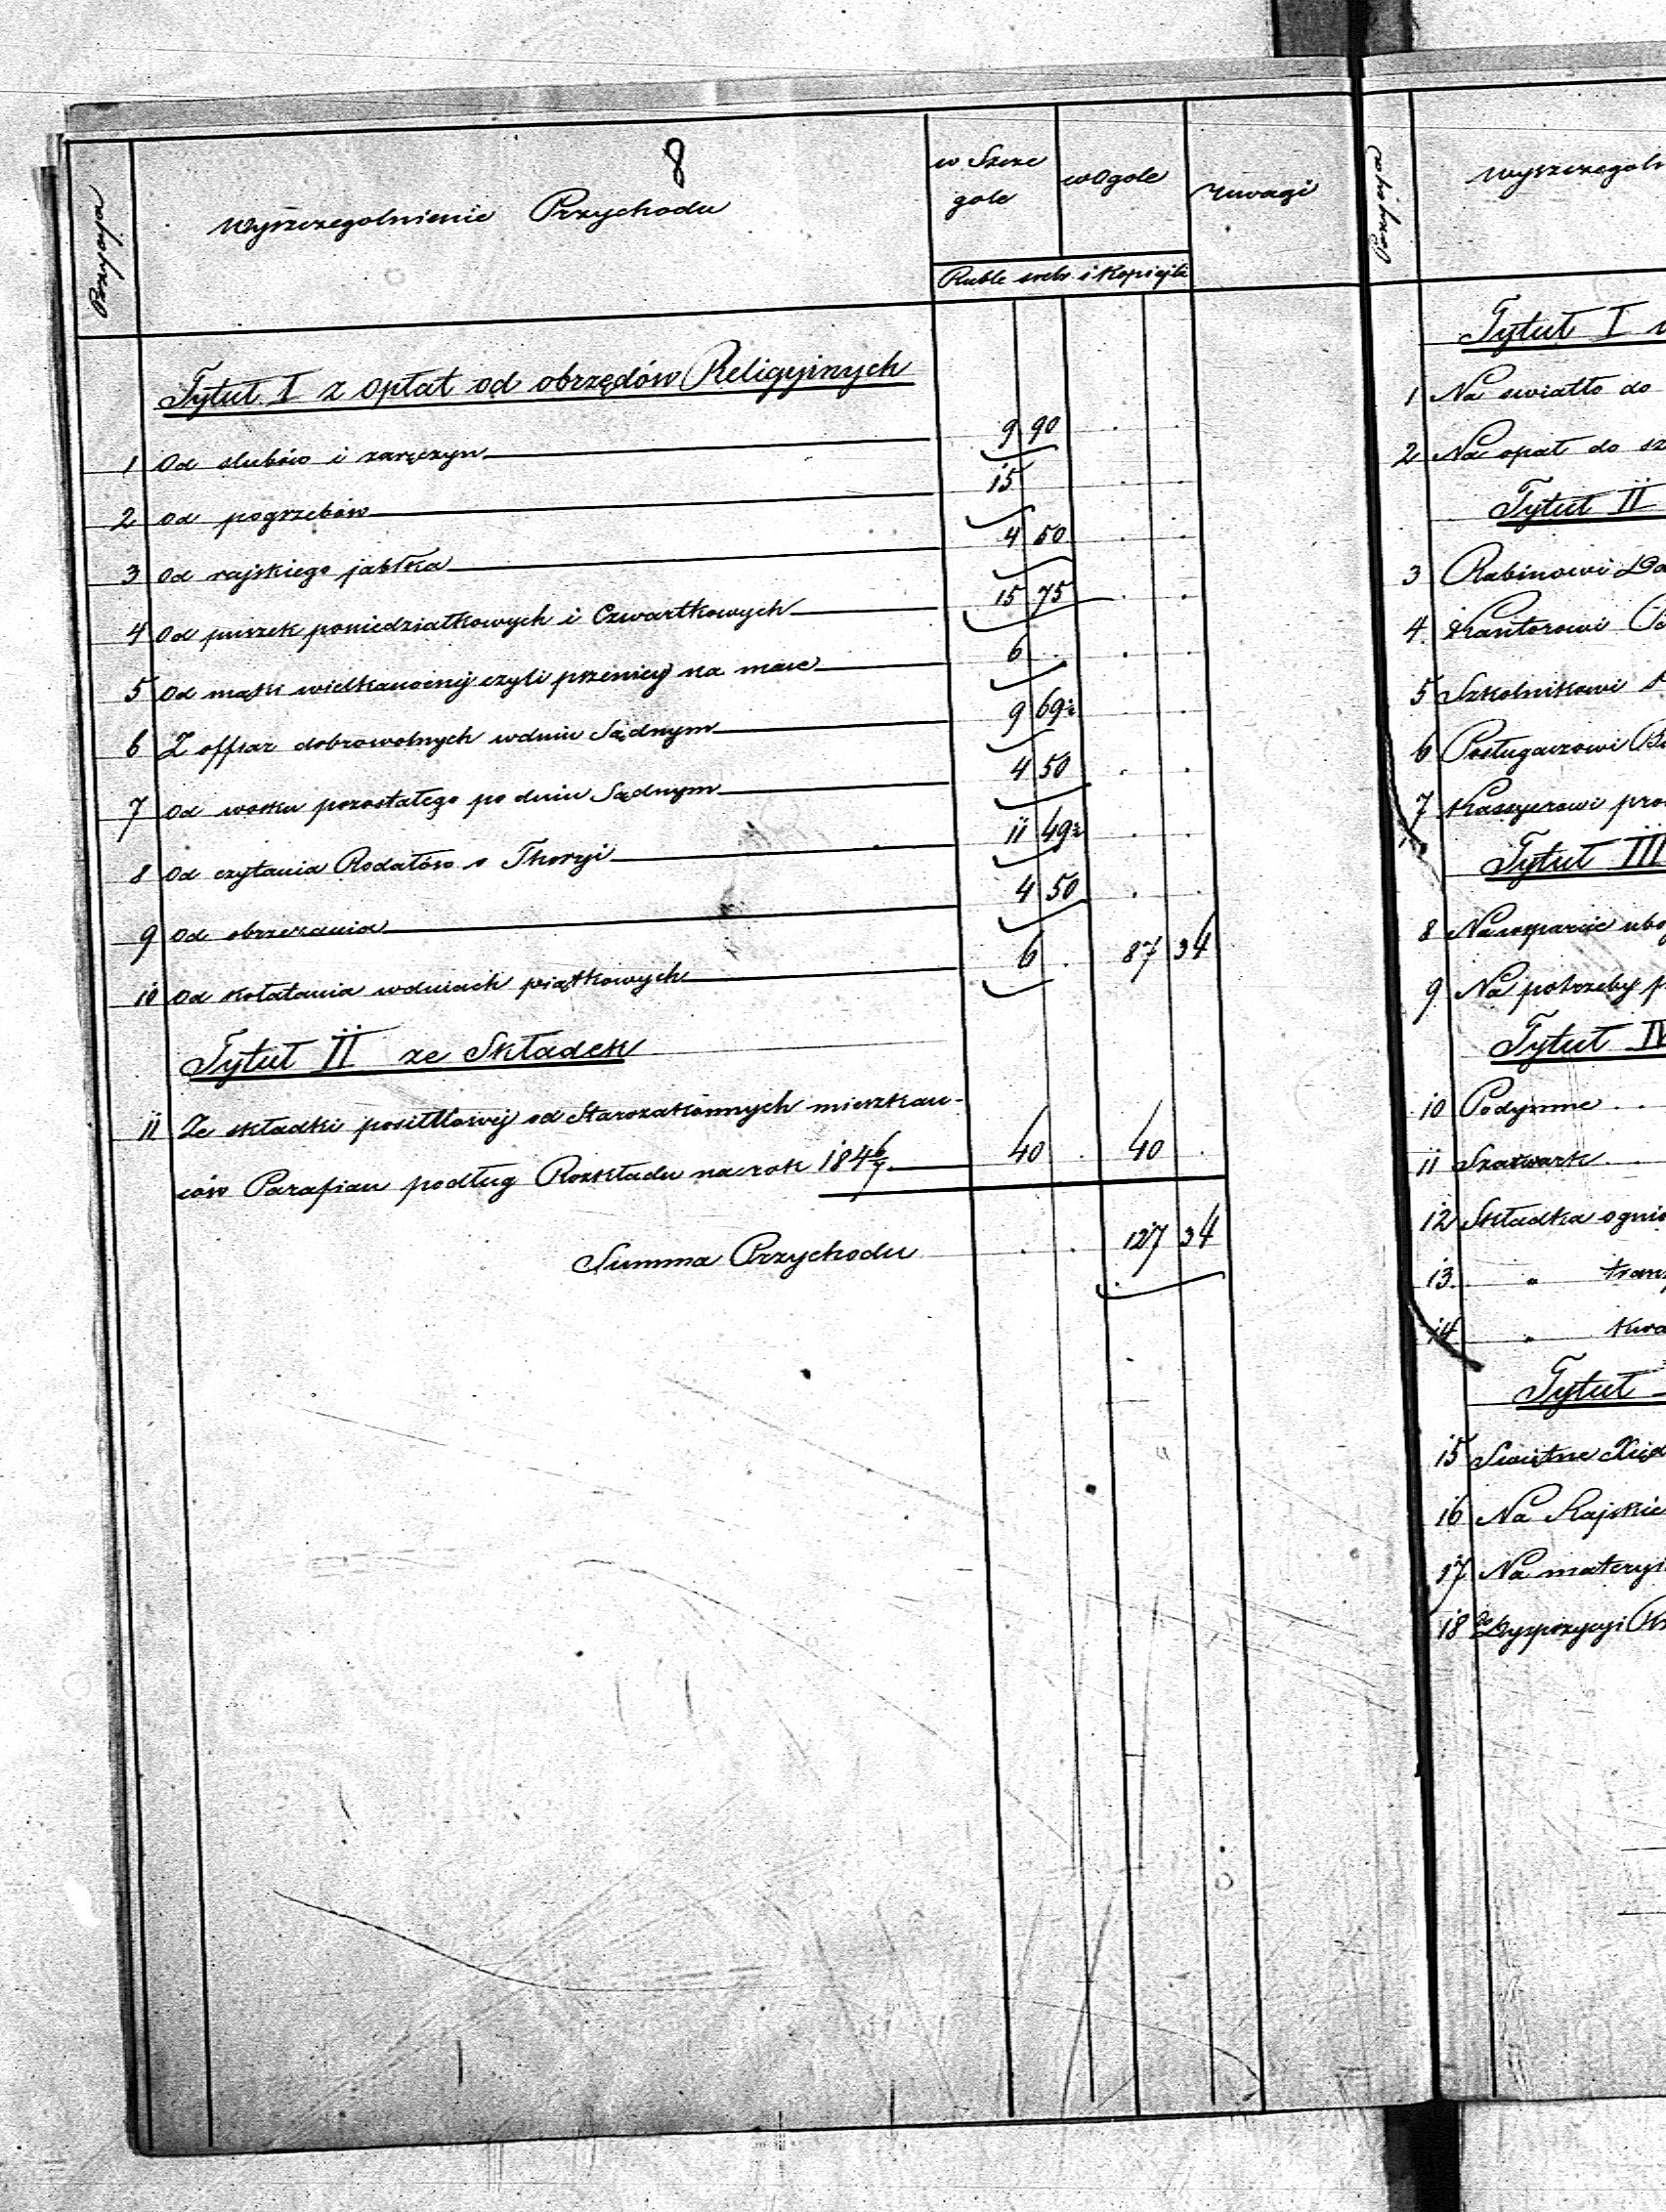 8
Pozycja
Wyszczegolnienie Przychodu
w Szcze
gole
w Ogole
Uwagi
Ruble srebr. i Kopiejki
Tytuł I z opłat od obrzędów Religyinych
1 Od slubów i zaręczyn 9 90
2 Od pogrzebów 15
3 Od rajskiego jabłka 4 50
4 Od puszek poniedziałkowych i Czwartkowych 15 75
5 Od mąki wielkanocnej czyli pszenicy na mace 6 .
6 Z offiar dobrowolnych w dniu Sądnym 9 69½
7 Od wosku pozostałego po dniu Sądnym 4 50
8 Od czytania Rodałów Thoryi 11 49½
9 Od obrzezania 4 50
10 Od kołatania w dniach piątkowych 6 . 87 34
Tytuł II ze Składek
11 Ze składki posiłkowej od Starozakonnych mieszkań-
ców Parafian podług Rozkładu na rok 1846/7 40 . 40 .
Summa Przychodu . . 127 34
Pozycja
Wyszczegoln
Tytuł I
1 Na swiatło do
2 Na opał do sz
Tytuł II
3 Rabinowi
4 Kantorowi
5 Szkolnikowi
6 Posługaczowi
7 Kassyerowi pro
Tytuł III
8 Na wsparcie ubo
9 Na potrzeby p
Tytuł IV
10 Podymne . .
11 Szarwark . .
12 Składka ognio
13 " trans
14 " kwa
Tytuł
15
16 Na Rajskie
17 Na materyi
18 Do Dyspozycyi